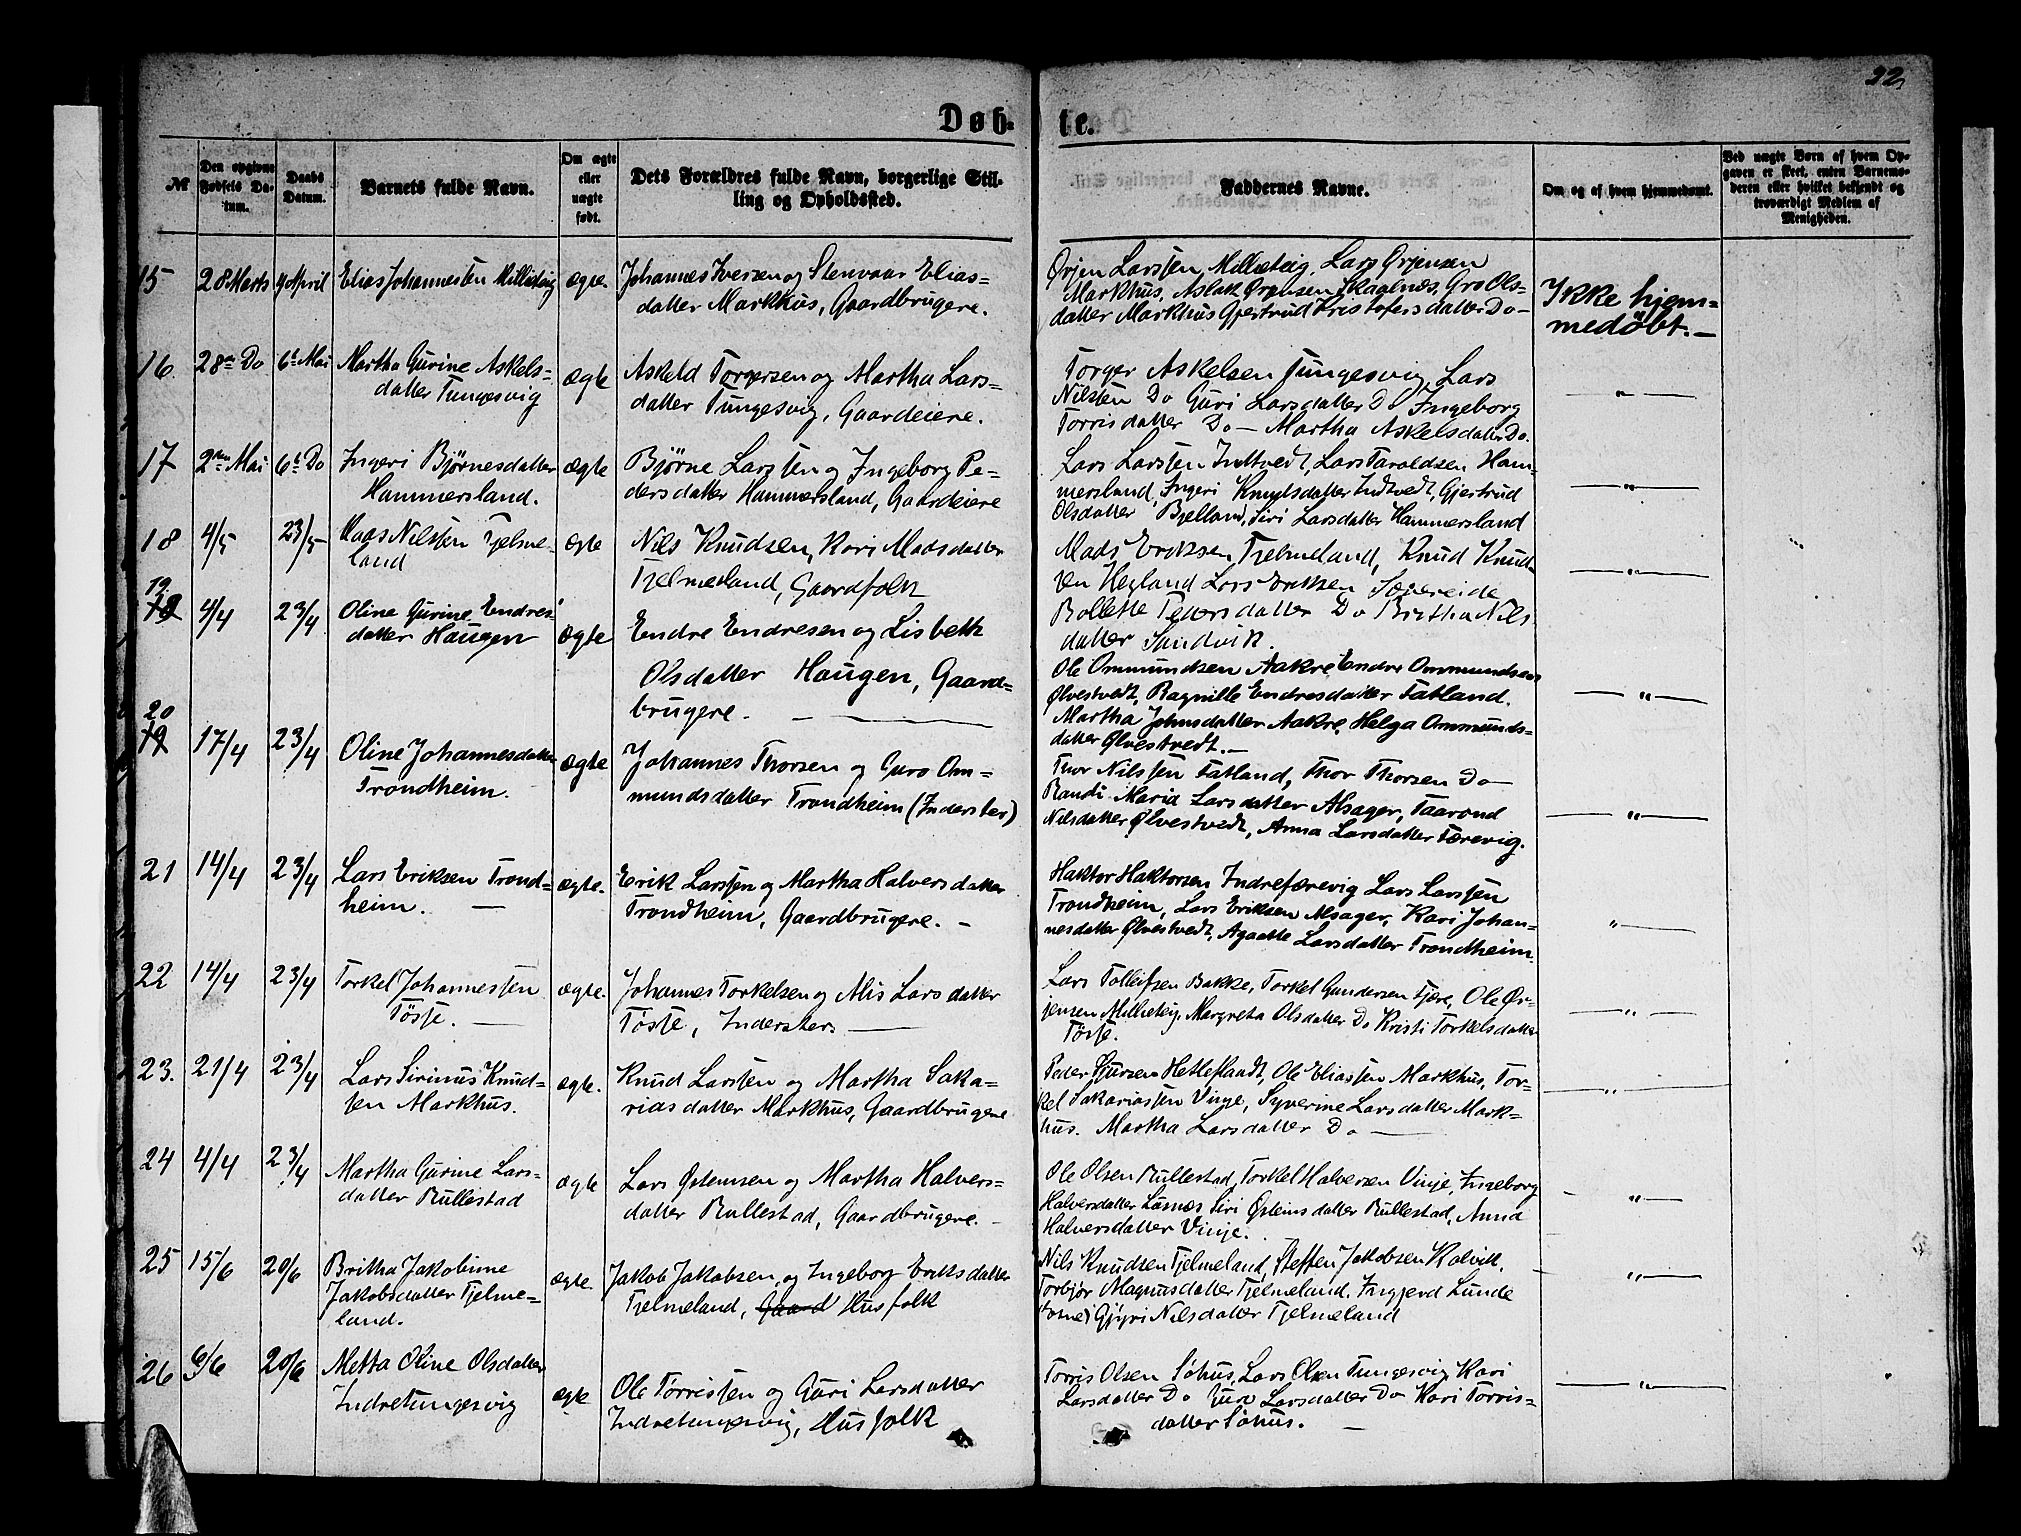 22
Døb-
te.
№
Den opgivne Fødsels Da-
tum.
Daabs Datum.
Barnets fulde Navn.
Om ægte eller uægte født.
Dets Forældres fulde Navn, borgerlige Stil-
ling og Opholdssted.
Faddernes Navne.
Om og af hvem hjemmedøbt.
Ved uægte Børn af hvem Op-
gaven er skeet, enten Barnemo-
deren eller hvilket bekjendt og
troværdigt Medlem af
Menigheden.
15 28 Marts April Elias Johannesten ægte. Johannes Iversen og Stenvaar Elias-
datter Markhus, Gaardbrugere.
Ørjen Larssen Lars Ørjensen
Markhus, Aslak Ørjensen Skaalnæs, Gro Ols-
datter Markhus Gjertrud Kristofersdatter Do -
Ikke hjem-
medøbt. -
16 28 Do 6 Mai Martha Gurine Askels-
datter Tungesvig
ægte
Askeld Torgersen og Martha Lars-
datter Tungesvig, Gaardeiere.
Torger Askelsen Tungesvig Lars
Nilssen Do Guri Larsdatter Do Ingeborg
Torrisdatter Do - Martha Askelsdatter Do.
- " -
17 2 Mai 6 Do Ingeri Bjørnesdatter
Hammersland.
ægte
Bjørne Larssen og Ingeborg Pe-
dersdatter Hammersland, Gaardeiere
Lars Larssen Indtvedt, Lars Taraldsen Ham-
mersland Ingeri Knutsdatter Indtvedt, Gjertrud
Olsdatter Bjelland, Siri Larsdatter Hammersland
- " -
18 4/5 23/5 Maas Nilssen Tjelme-
land
ægte
Nils Knudsen, Kari Madsdatter
Tjelmeland, Gaardfolk
Mads Eriksen Tjelmeland, Knud Knud-
sen Hegland Lars Eriksen Sævereide
Bollette Pedersdatter Do Britha Nils-
datter Sandvik.
- " -
19 4/4 23/4 Oline Gurine Endres-
datter Haugen
ægte
Endre Endresen og Lisbeth
Olsdatter Haugen, Gaard-
brugere. -
Ole Ommundsen Aakre Endre Ommundsen
Ølvestvedt, Ragnille Endresdatter Fatland.
Martha Johnsdatter Aakre, Helga Ommunds-
datter Ølvestvedt. -
- " -
20 17/4 23/4 Oline Johannesdatter
Trondheim.
ægte
Johannes Thorsen og Guro Om-
mundsdatter Trondheim (Inderster)
Thor Nilssen Fatland, Thor Thorsen Do -
Randi Maria Larsdatter Alsager, Taarond
Nilsdatter Ølvestvedt, Anna Larsdatter Færevig.
- " -
21 14/4 23/4 Lars Eriksen Trond-
heim. -
ægte.
Erik Larssen og Martha Halversdatter
Trondheim, Gaardbrugere. -
Haktor Haktorsen Indrefærevig Lars Larssen
Trondheim, Lars Eriksen Alsager, Kari Johan-
nesdatter Ølvestvedt, Agaathe Larsdatter Trondheim.
" -
22 14/4 23/4 Torkel Johannessen
Tösse. -
ægte.
Johannes Torkelsen og Alis Larsdatter
Tösse, Indersters -
Lars Tolleifsen Bakke, Torkel Gundersen Tjære, Ole Ør-
jensen Margreta Olsdatter Do Kristi Torkelsdatter
Tösse.
- " -
23. 21/4 23/4 Lars Sirinus Knud-
sen Markhus.
ægte.
Knud Larssen og Martha Saka-
riasdatter Markhus, Gaardbrugere
Peder Sjursen Hetleflaadt, Ole Eliassen Markhus, Tor-
kel Sakariassen Vinje, Syverine Larsdatter Mark-
hus. Martha Larsdatter Do -
- " -
24 4/4 23/4 Martha Gurine Lars-
datter Rullestad
ægte
Lars Østensen og Martha Halvers-
datter Rullestad, Gaardbrugere. -
Ole Olsen Rullestad, Torkel Halversen Vinje, Ingeborg
Halversdatter Lusnæs Siri Østeinsdatter Rullestad, Anna
Halversdatter Vinje.
- " -
25 15/6 20/6 Britha Jakobine
Jakobsdatter Tjelme-
land.
ægte.
Jakob Jakobsen, og Ingeborg Eriksdatter
Tjelmeland, Gaard Husfolk
Nils Knudsen Tjelmeland, Steffen Jakobsen Kalvik.
Torbjør Magnusdatter Tjelmeland. Ingjerd Lunde
Nilsdatter Tjelmeland
- " -
26 6/6 20/6 Metta Oline Olsdatter
Indretungesvig
ægte
Ole Torrissen og Guri Larsdatter
Indretungesvig, Husfolk
Torris Olsen Söhus, Lars Olsen Tungesvig Kari
Larsdatter Do Larsdatter Do Kari Torris-
datter Söhus. -
- " -